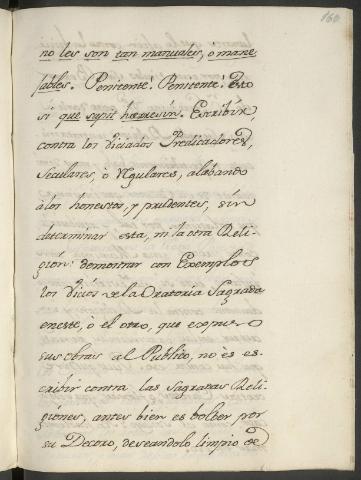 160.
no les son tan manuales, ò mane
jables. Penitente! Penitente! Esto
si que sapit hæresin. Escribir
contra los viciados Predicadores,
Seculares, ò Regulares, alabando
à los honestos, y prudentes, sin
determinar esta, ni la otra Reli-
gión: demostrar con Exemplos
los vicios de la Oratoria Sagrada
en este, ò el otro, que expuso
sus obras al Publico, no ès es-
cribir contra las Sagradas Reli-
giónes, antes bien es bolber por
su Decoro, deseandolo limpio de